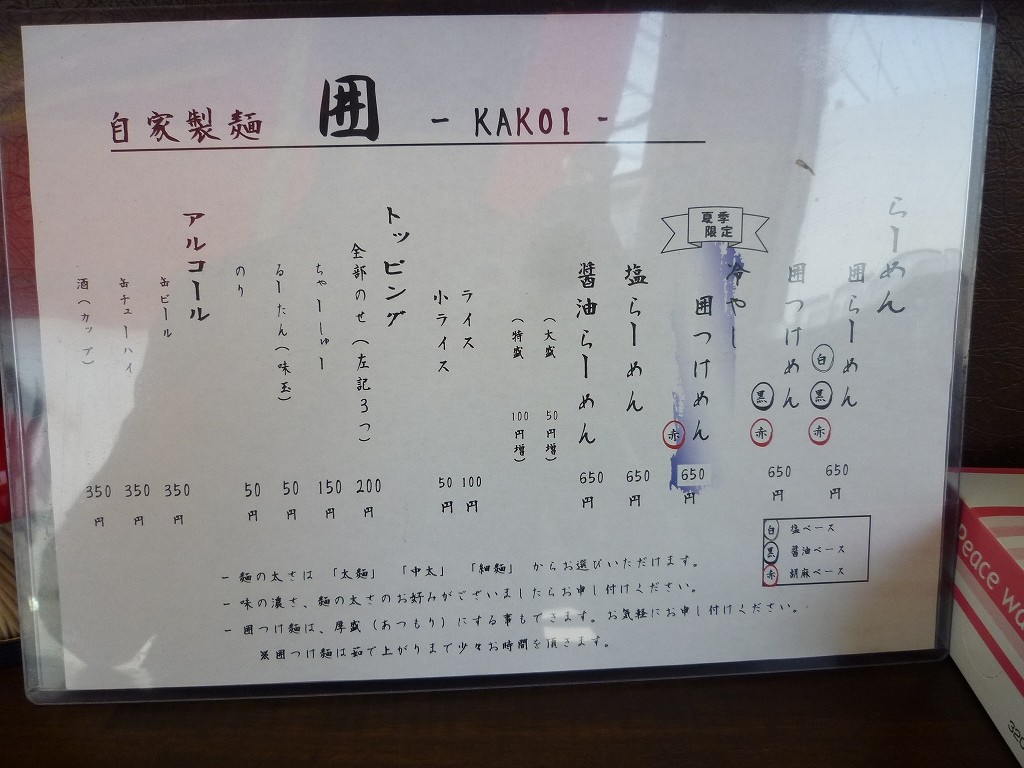 自家製麺 囲 - KAKOI -
らーめん
囲らーめん 白 黒 赤 650円
囲つけめん 黒 赤 650円
夏季
限定
冷やし
囲つけめん 赤 650円
塩らーめん 650円
醤油らーめん 650円
（大盛 50円増）
（特盛 100円増）
ライス 100円
小ライス 50円
トッピング
全部のせ（左記3つ） 200円
ちゃーしゅー 150円
るーたん（味玉） 50円
のり 50円
アルコール
缶ビール 350円
缶チューハイ 350円
酒（カップ） 350円
白 塩ベース
黒 醤油ベース
赤 胡麻ベース
- 麺の太さは 「太麺」 「中太」 「細麺」 からお選びいただけます。
- 味の濃さ、麺の太さのお好みがございましたらお申し付けください。
- 囲つけ麺は、厚盛（あつもり）にする事もできます。お気軽にお申し付けください。
※囲つけ麺は茹で上がりまで少々お時間を頂きます。
Peace
320